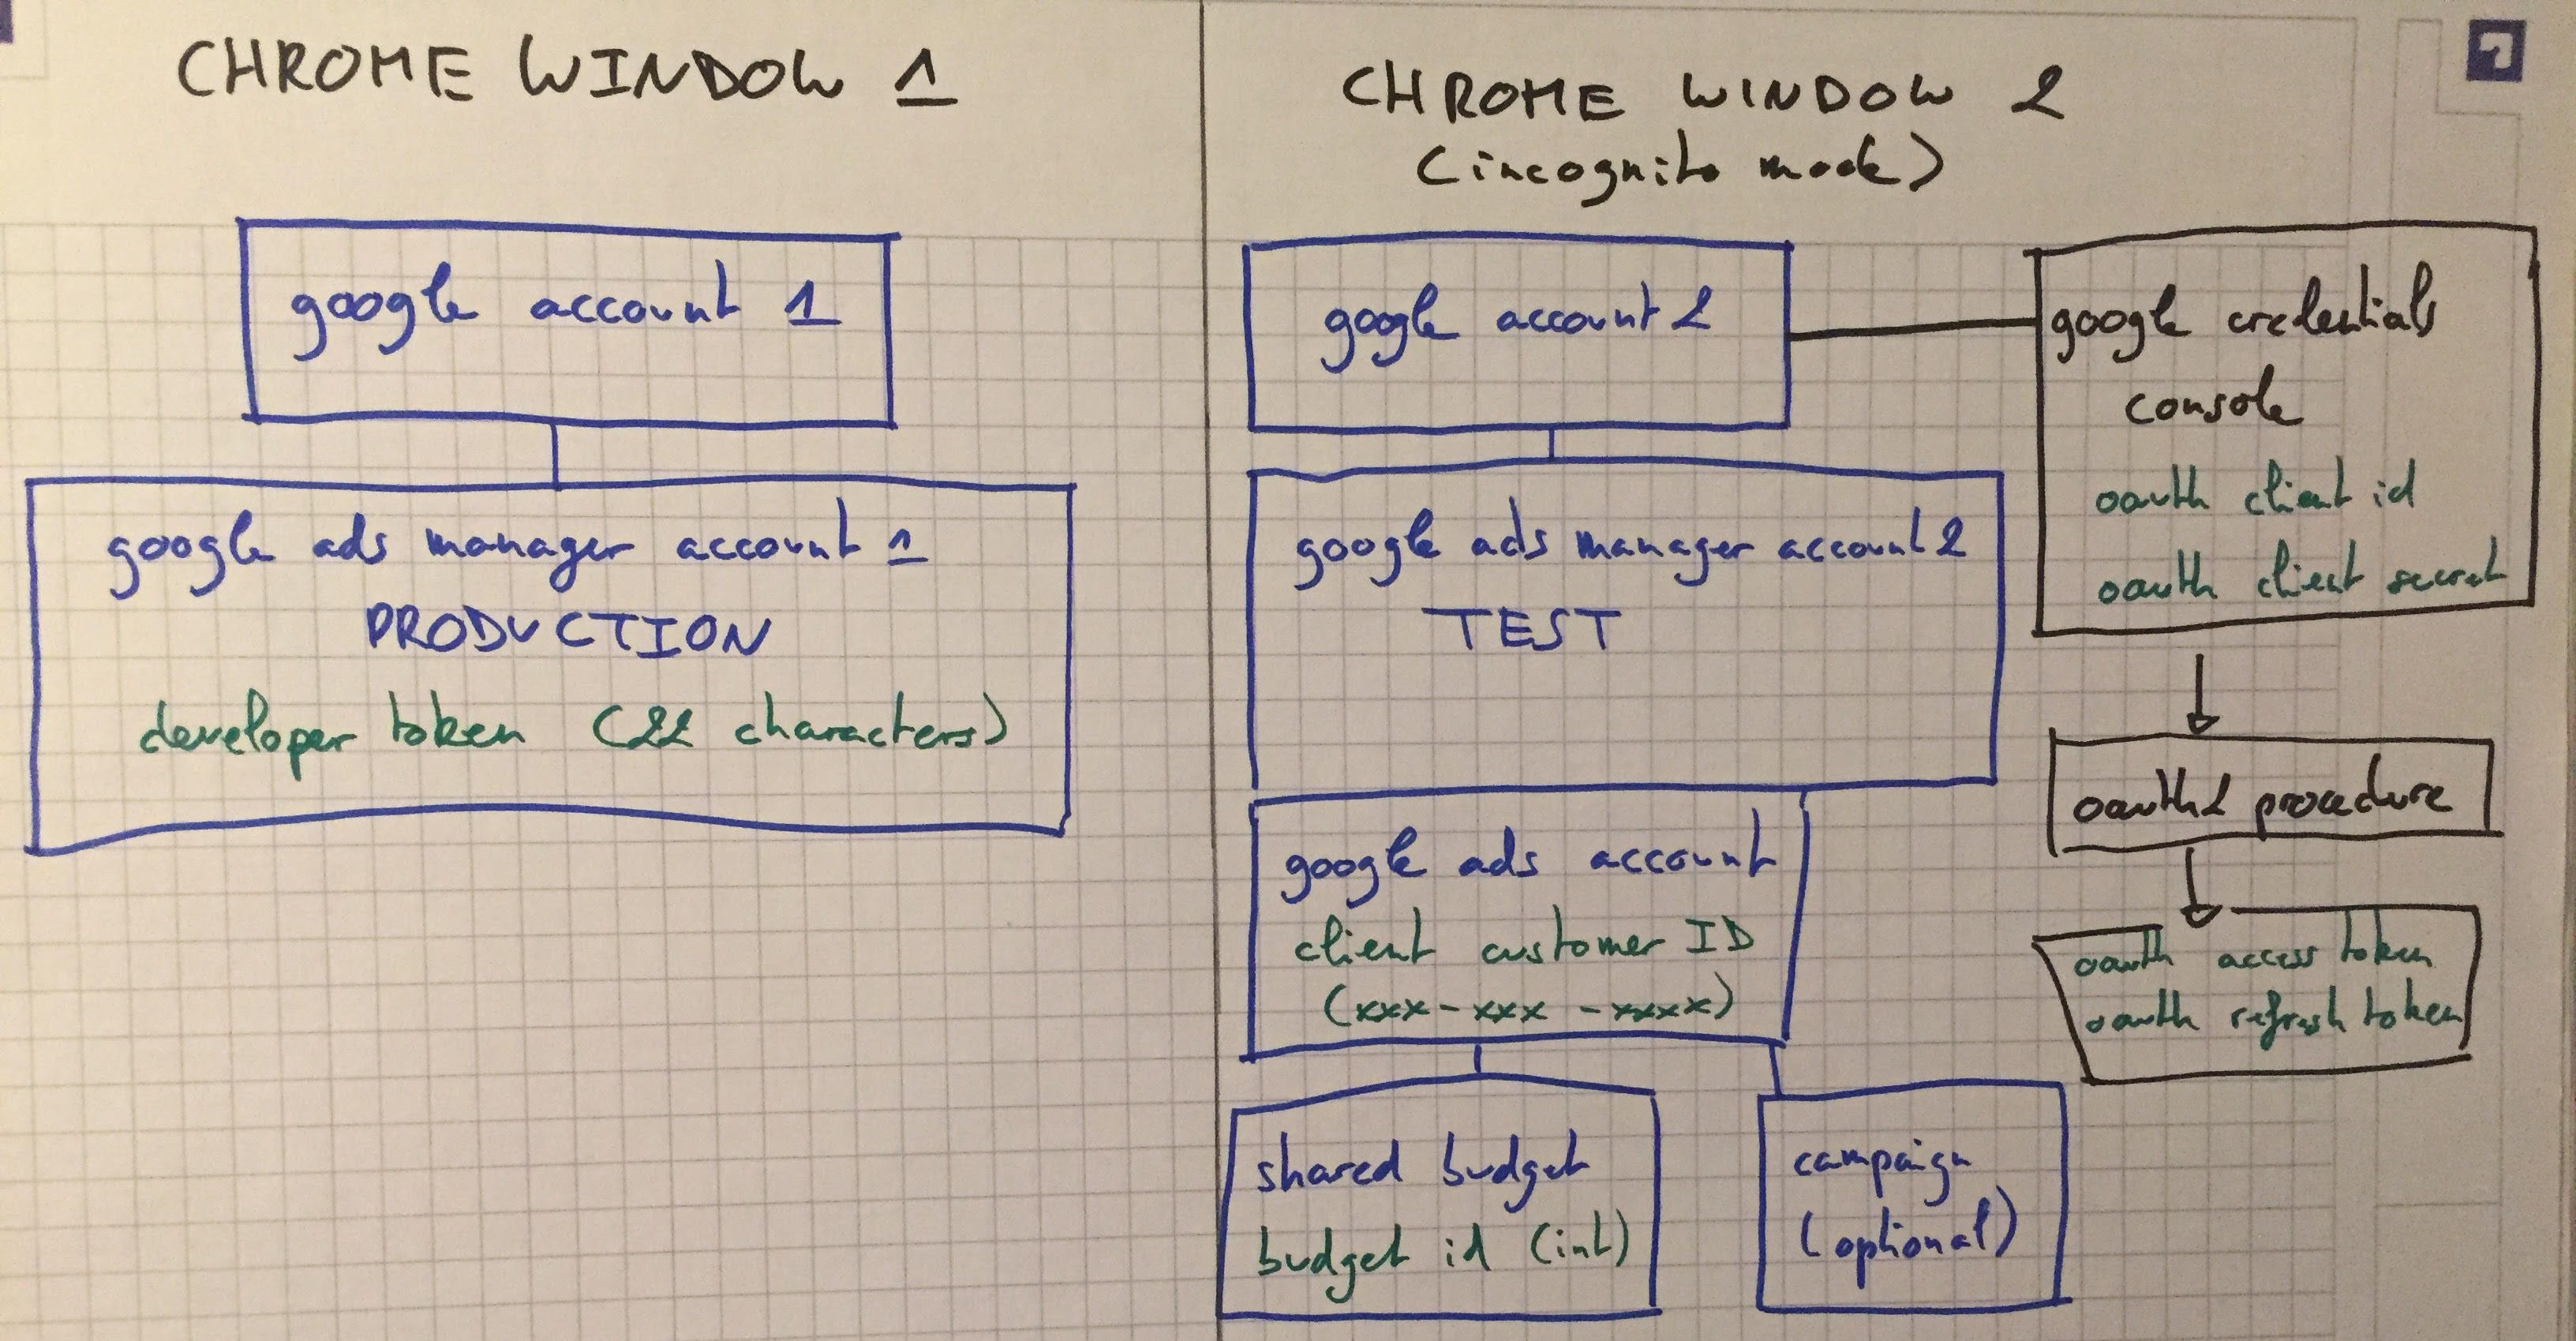 CHROME WINDOW 1
google account 1
google ads manager account 1
PRODUCTION
developer token (22 characters)
CHROME WINDOW 2
(incognito mode)
google account 2
google ads manager account 2
TEST
google ads account
client customer ID
(xxx-xxx-xxxx)
shared budget
budget id (int)
campaign
(optional)
google credentials
console
oauth client id
oauth client secret
oauth2 procedure
oauth access token
oauth refresh token